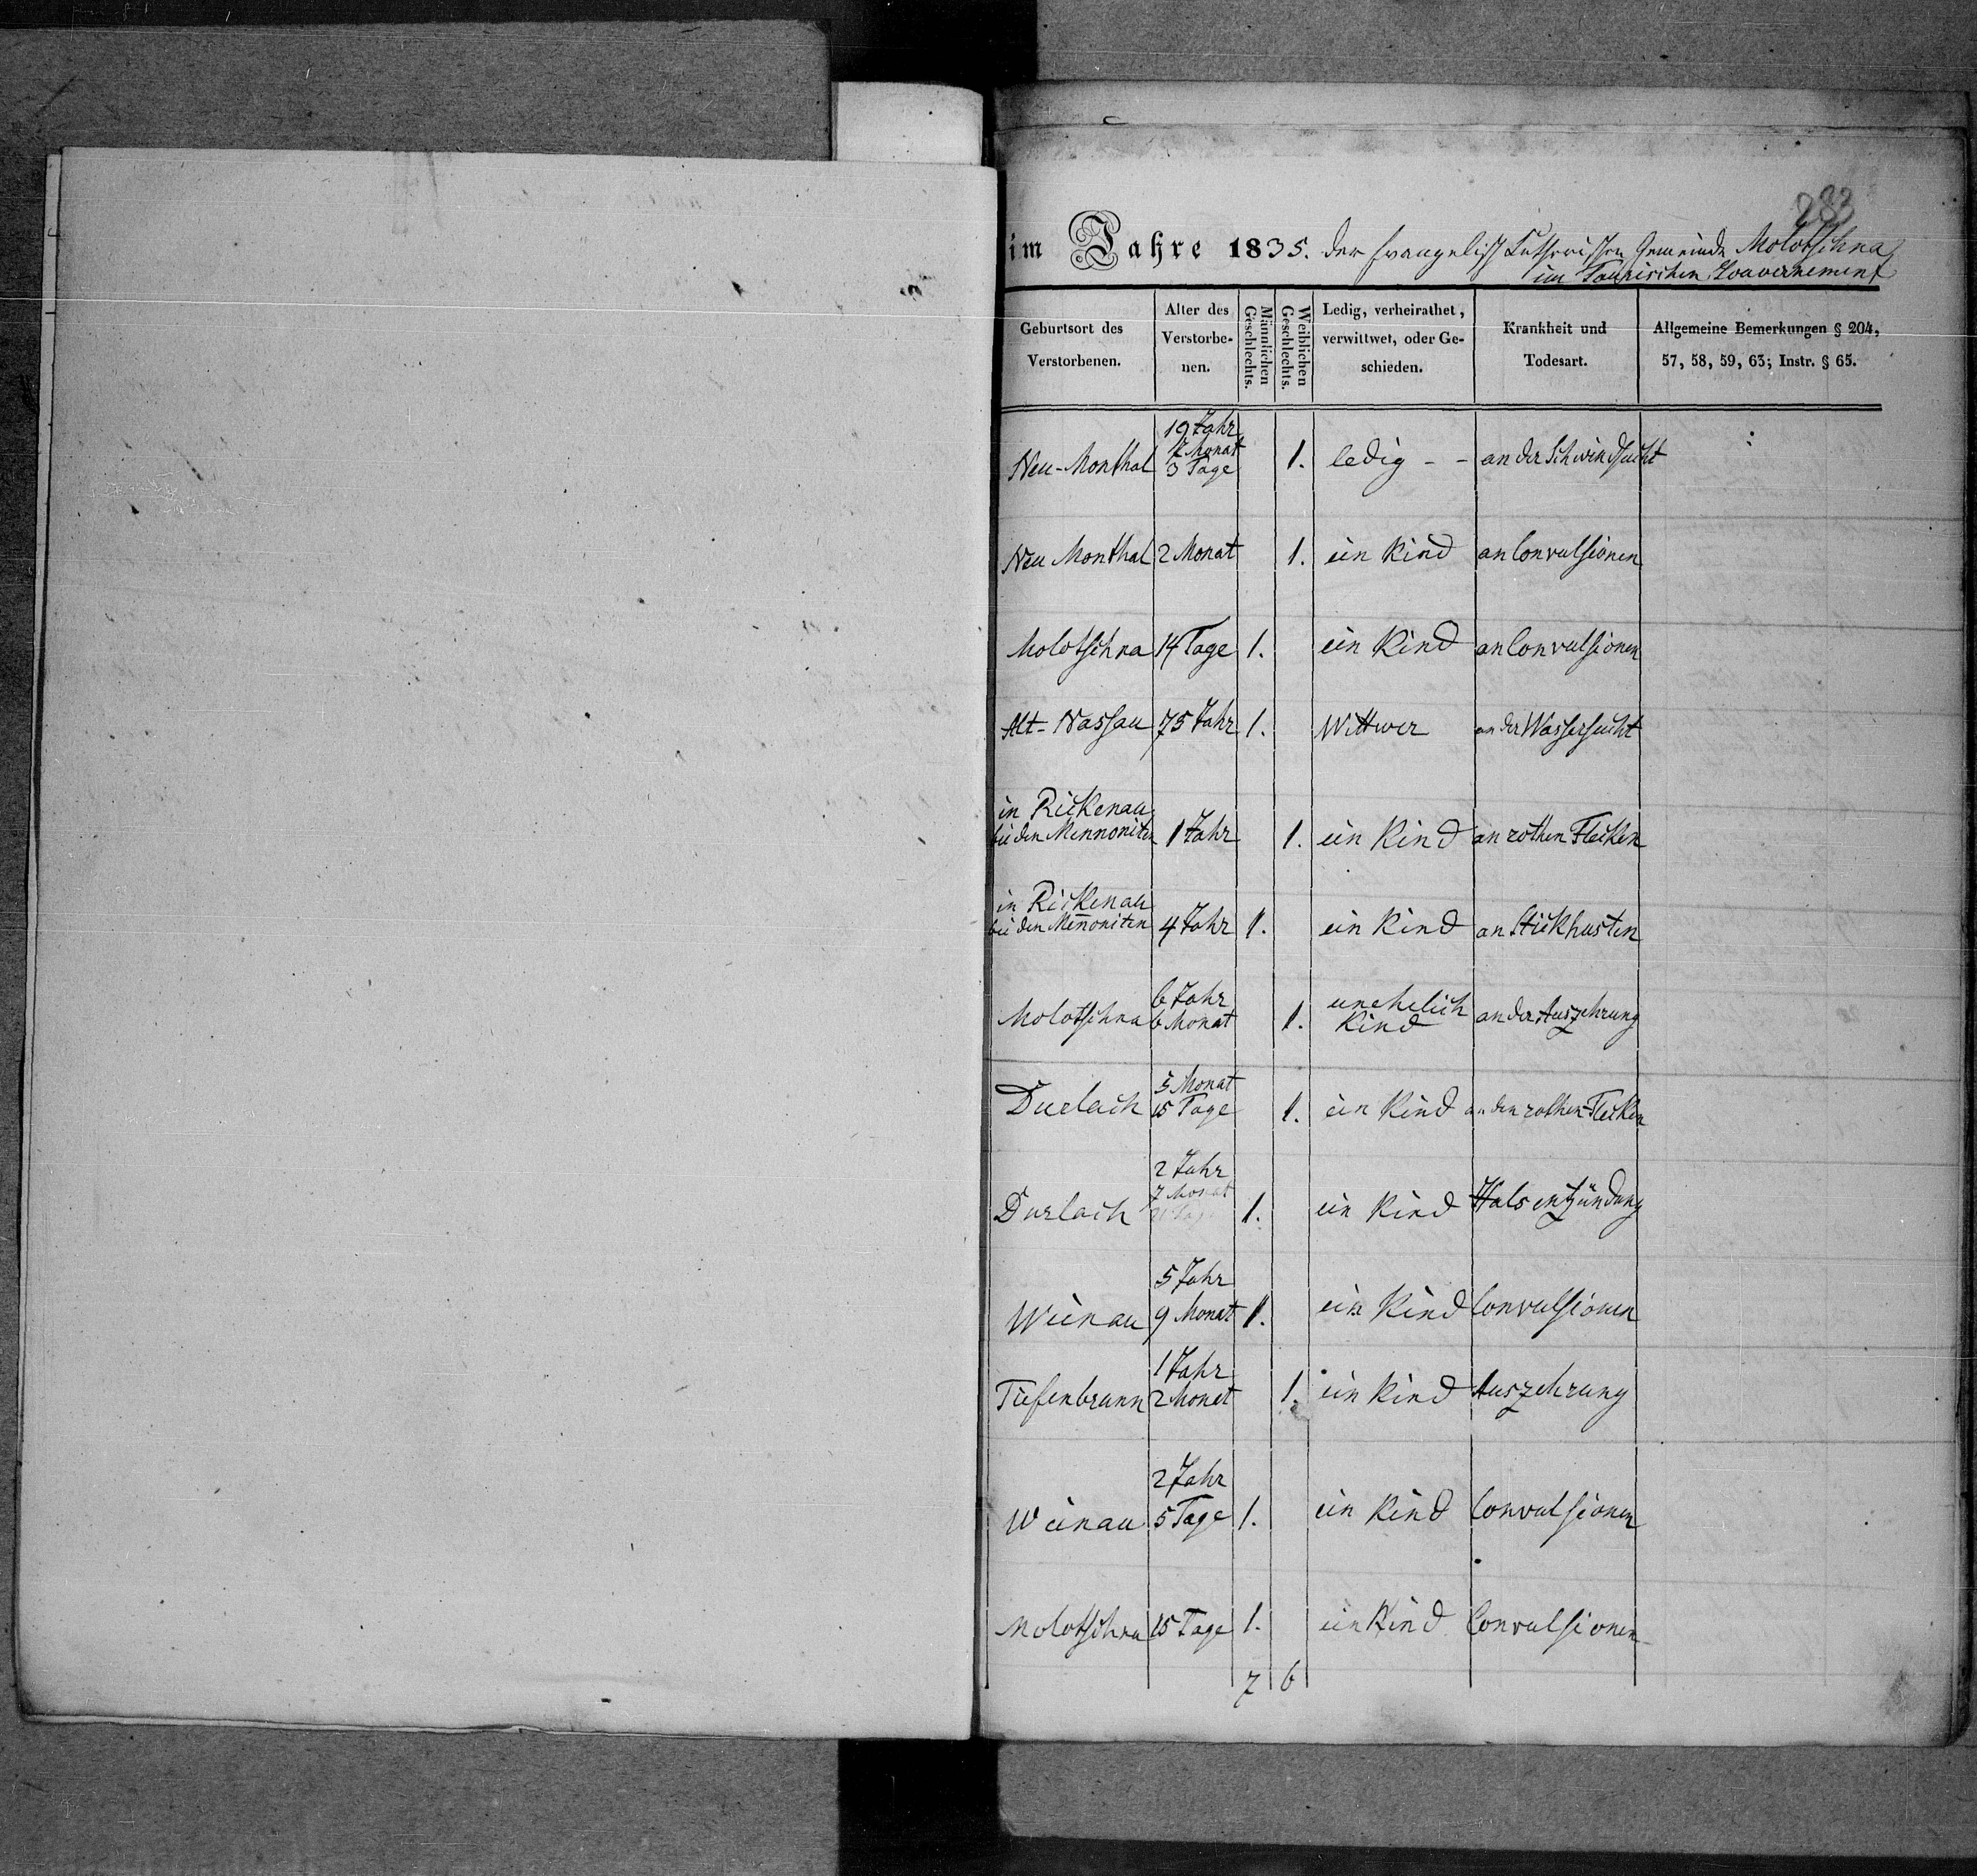 283
im Jahre 1835. der Evangelisch Lutherischen Gemeinde Molotschna
im Taurischen Gouvernement
Geburtsort des Verstorbenen.
Alter des Verstorbe-nen.
Männlichen Geschlechts.
Weiblichen Geschlechts.
Ledig, verheirathet, verwittwet, oder Ge-schieden.
Krankheit und Todesart.
Allgemeine Bemerkungen § 204, 57, 58, 59, 63; Instr. § 65.
19 Jahr
7 Monat
Neu-Monthal 3 Tage 1. ledig - - an der Schwindsucht
Neu Monthal 2 Monat 1. ein Kind an Convulsionen
Molotschna 14 Tage 1. ein Kind an Convulsionen
Alt-Nassau 75 Jahr 1. Wittwer an der Wassersucht
in Rickenau
bei den Mennoniten 1 Jahr 1. ein Kind an rothen Flecken
in Rickenau
bei den Men̅oniten 4 Jahr 1. ein Kind an Stickhusten
6 Jahr unehelich
Molotschna 6 Monat 1. Kind an der Auszehrung
5 Monat
Durlach 15 Tage 1. ein Kind an den rothen Flecken
2 Jahr
7 Monat
Durlach 1. ein Kind Halsentzündung
5 Jahr
Weinau 9 Monat 1. ein Kind Convulsionen
1 Jahr
Tiefenbrunn 2 Monat 1. ein Kind Auszehrung
2 Jahr
Weinau 5 Tage 1. ein Kind Convulsionen
Molotschna 15 Tage 1. ein Kind Convulsionen
7 6